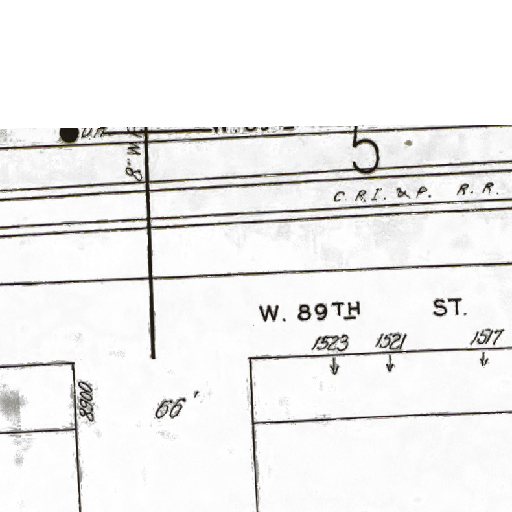 5
8" W.
C. R. I. & P. R. R.
W. 89TH ST.
1523 1521 1517
8900
66'